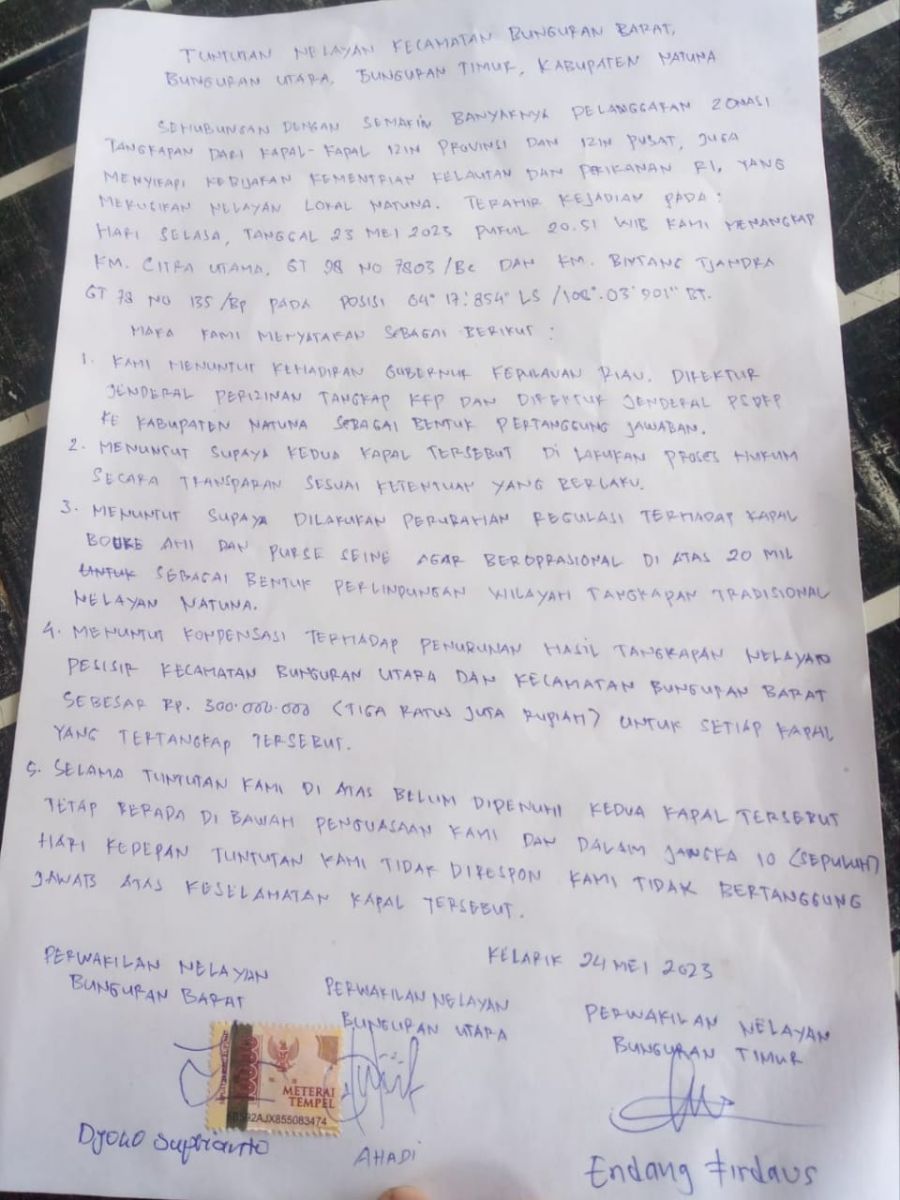 TUNTUTAN NELAYAN KECAMATAN BUNGURAN BARAT,
BUNGURAN UTARA, BUNGURAN TIMUR, KABUPATEN NATUNA
SEHUBUNGAN DENGAN SEMAKIN BANYAKNYA PELANGGARAN ZONASI
TANGKAPAN DARI KAPAL-KAPAL IZIN PROVINSI DAN IZIN PUSAT, JUGA
MENYIKAPI KEBIJAKAN KEMENTRIAN KELAUTAN DAN PERIKANAN RI, YANG
MERUGIKAN NELAYAN LOKAL NATUNA. TERAHIR KEJADIAN PADA:
HARI SELASA, TANGGAL 23 MEI 2023 PUKUL 20.51 WIB KAMI MENANGKAP
KM. CITRA UTAMA, GT 98 NO 7803/Bc DAN KM. BINTANG TJANDRA
GT 78 NO 135/Bp PADA POSISI 04° 17'.854" LS /108°.03'901" BT.
MAKA KAMI MENYATAKAN SEBAGAI BERIKUT:
1. KAMI MENUNTUT KEHADIRAN GUBERNUR KEPULAUAN RIAU. DIREKTUR
JENDERAL PERIZINAN TANGKAP KKP DAN DIREKTUR JENDERAL PSDKP
KE KABUPATEN NATUNA SEBAGAI BENTUK PERTANGGUNG JAWABAN.
2. MENUNTUT SUPAYA KEDUA KAPAL TERSEBUT DI LAKUKAN PROSES HUKUM
SECARA TRANSPARAN SESUAI KETENTUAN YANG BERLAKU.
3. MENUNTUT SUPAYA DILAKUKAN PERUBAHAN REGULASI TERHADAP KAPAL
BOUKE AMI DAN PURSE SEINE AGAR BEROPRASIONAL DI ATAS 20 MIL
UNTUK SEBAGAI BENTUK PERLINDUNGAN WILAYAH TANGKAPAN TRADISIONAL
NELAYAN NATUNA.
4. MENUNTUT KOMPENSASI TERHADAP PENURUNAN HASIL TANGKAPAN NELAYAN
PESISIR KECAMATAN BUNGURAN UTARA DAN KECAMATAN BUNGURAN BARAT
SEBESAR RP. 300.000.000 (TIGA RATUS JUTA RUPIAH) UNTUK SETIAP KAPAL
YANG TERTANGKAP TERSEBUT.
5. SELAMA TUNTUTAN KAMI DI ATAS BELUM DIPENUHI KEDUA KAPAL TERSEBUT
TETAP BERADA DI BAWAH PENGUASAAN KAMI DAN DALAM JANGKA 10 (SEPULUH)
HARI KEDEPAN TUNTUTAN KAMI TIDAK DIRESPON KAMI TIDAK BERTANGGUNG
JAWAB ATAS KESELAMATAN KAPAL TERSEBUT.
KELARIK 24 MEI 2023
PERWAKILAN NELAYAN
BUNGURAN BARAT
PERWAKILAN NELAYAN
BUNGURAN UTARA
PERWAKILAN NELAYAN
BUNGURAN TIMUR
METERAI
TEMPEL
2AJX855083474
Djoko Suprianto
AHADI
Endang Firdaus